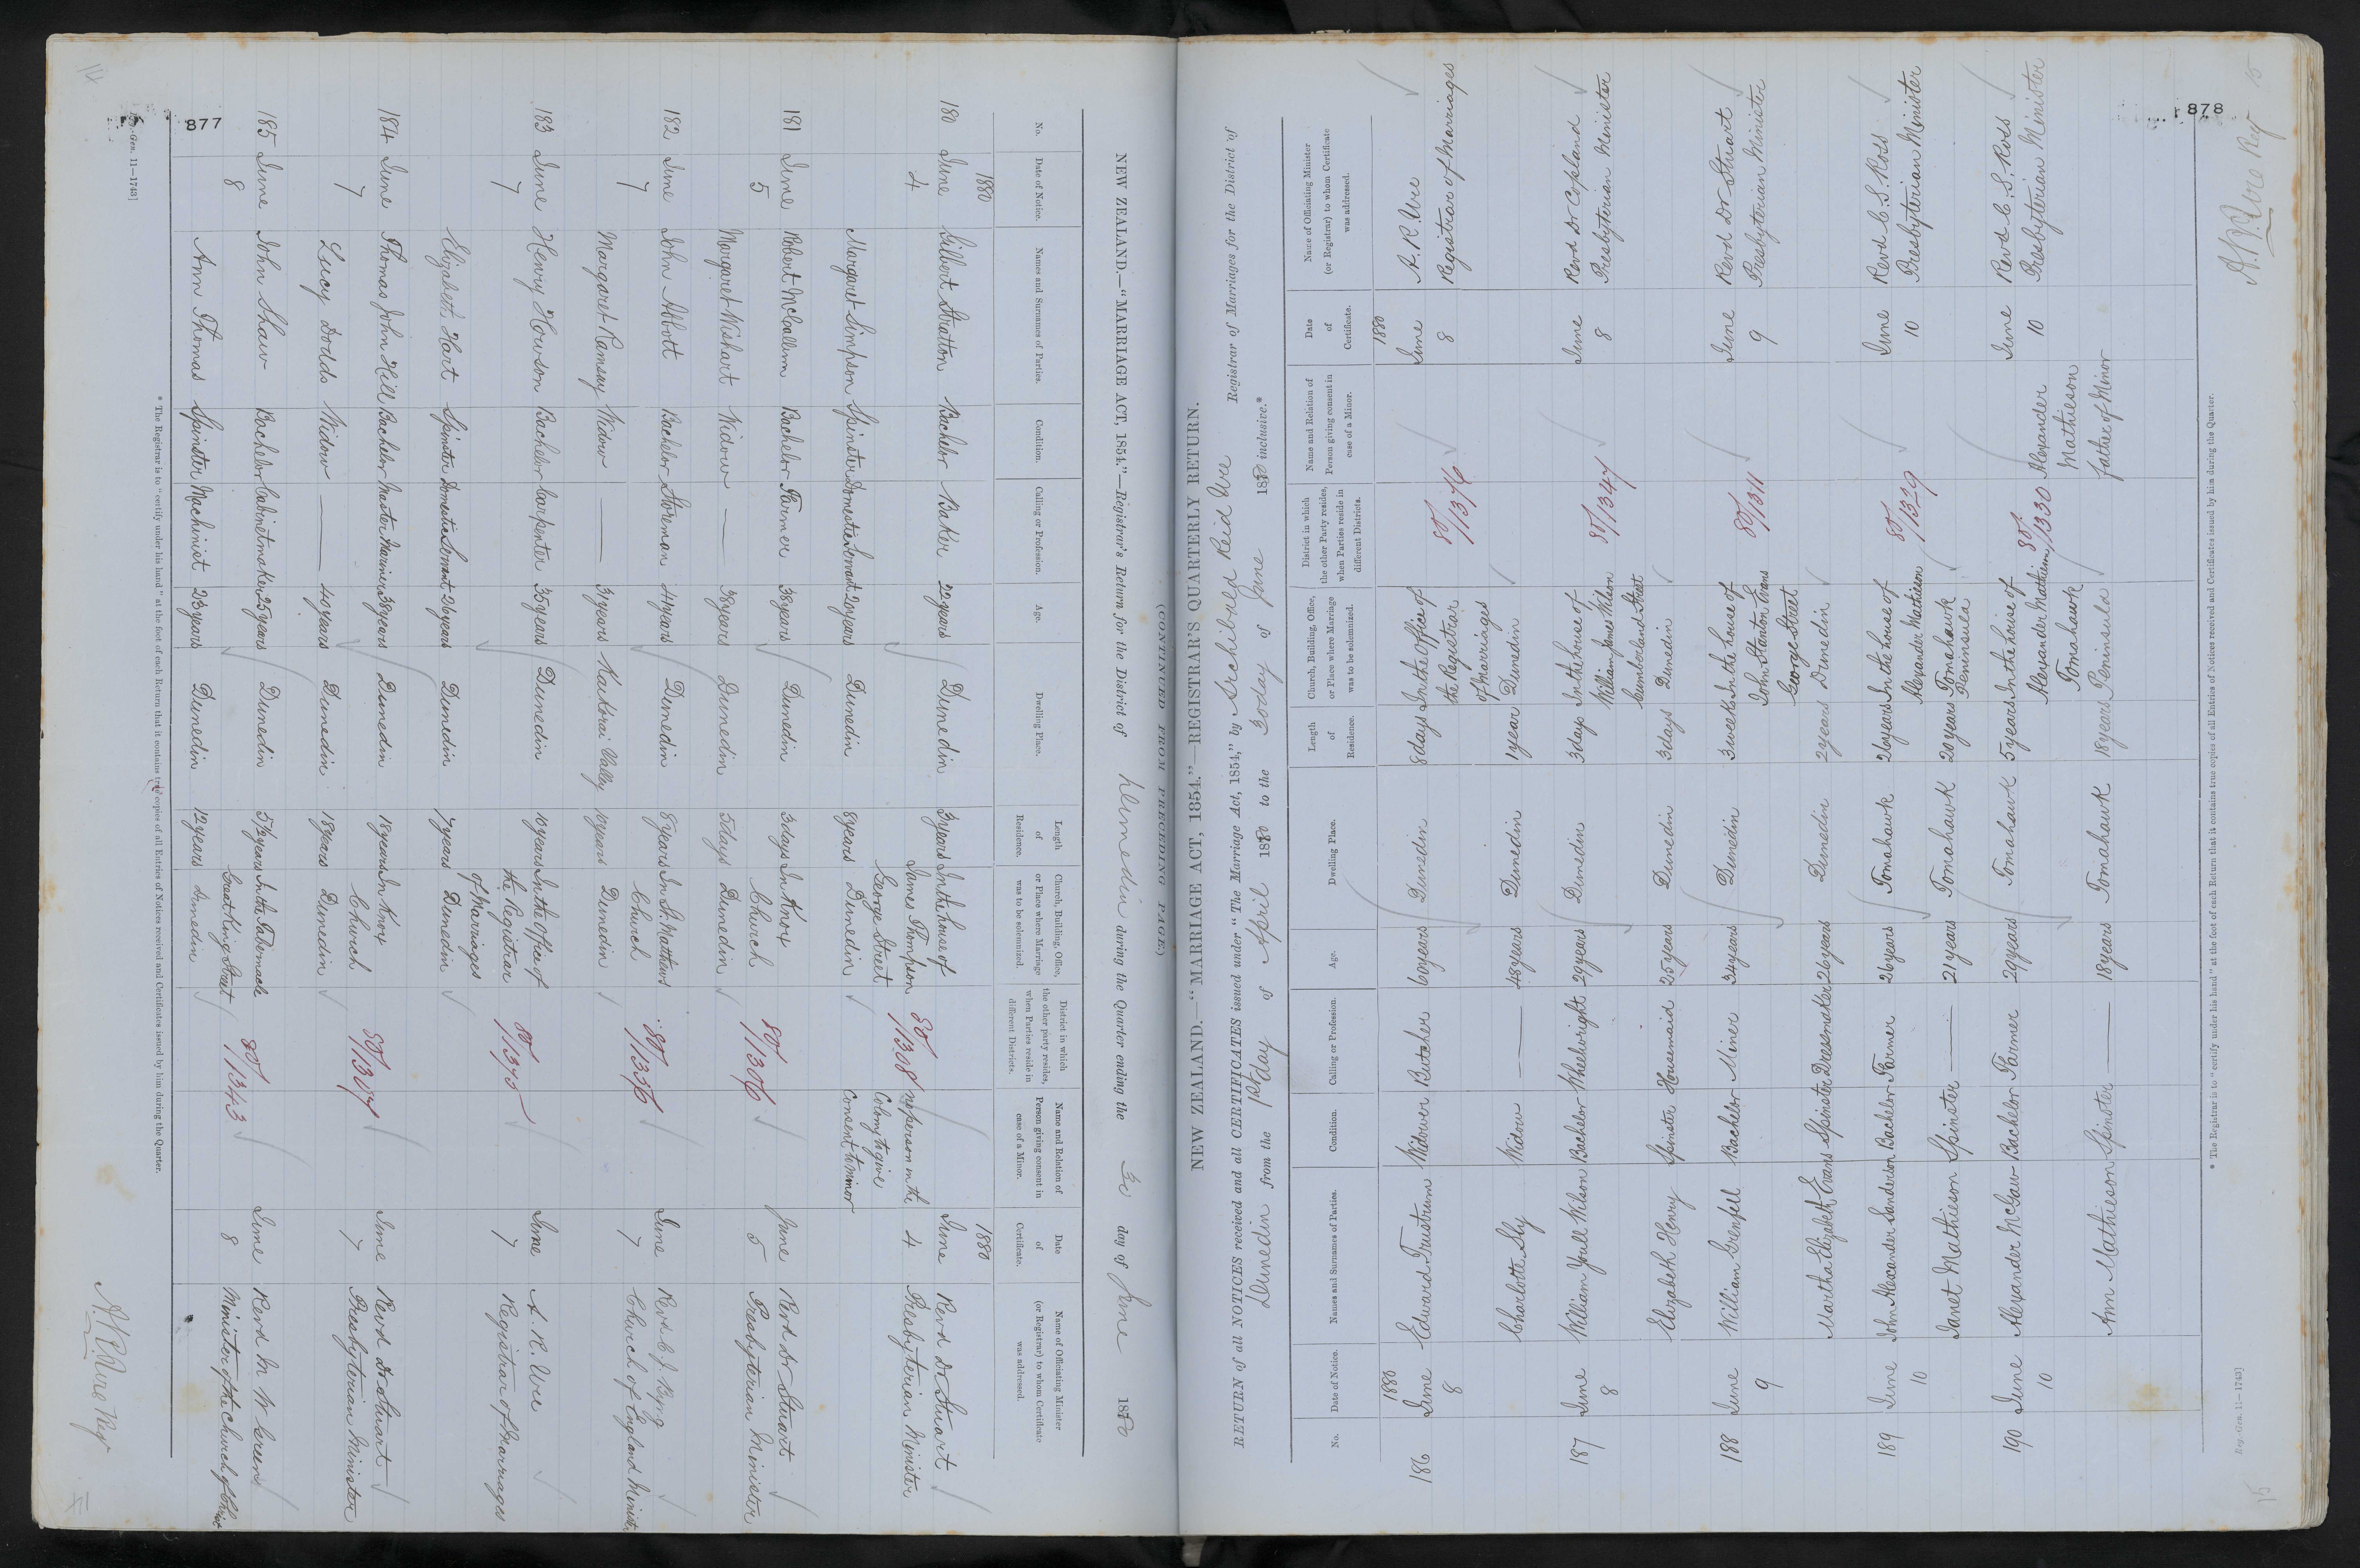 14
877
NEW ZEALAND.—"MARRIAGE ACT, 1854."—Registrar's Return for the District of Dunedin during the Quarter ending the 30 day of June 1880
No. Date of Notice. Names and Surnames of Parties. Condition. Calling or Profession. Age. Dwelling Place. Length of Residence. Church, Building, Office, or Place where Marriage was to be solemnized. District in which the other party resides, when Parties reside in different Districts. Name and Relation of Person giving consent in case of a Minor. Date of Certificate. Name of Officiating Minister (or Registrar) to whom Certificate was addressed.
1880 1880
180 June 4 Gilbert Stratton Bachelor Baker 22 years Dunedin 3 years In the house of James Thompson George Street Dunedin 80/1308 no person in the Colony to give Consent to minor June 4 Revd Dr Stuart Presbyterian Minister
Margaret Simpson Spinster Domestic Servant 20 years Dunedin 8 years
181 June 5 Robert McCallum Bachelor Farmer 38 years Dunedin 3 days In Knox Church Dunedin 80/1306 June 5 Revd Dr Stuart Presbyterian Minister
Margaret Wishart Widow — 38 years Dunedin 5 days
182 June 7 John Abbott Bachelor Storeman 41 years Dunedin 8 years In St. Matthews Church Dunedin 80/1356 June 7 Revd C. J. Byng Church of England Minister
Margaret Ramsay Widow — 31 years Kaikorai Valley 10 years
183 June 7 Henry Howson Bachelor Carpenter 35 years Dunedin 10 years In the Office of the Registrar of Marriages Dunedin 80/1375 June 7 A. R. Ure Registrar of Marriages
Elizabeth Hart Spinster Domestic Servant 26 years Dunedin 7 years
184 June 7 Thomas John Hill Bachelor Master Mariner 38 years Dunedin 18 years In Knox Church Dunedin 80/1307 June 7 Revd Dr Stuart Presbyterian Minister
Lucy Dodds Widow — 40 years Dunedin 18 years
185 June 8 John Shaw Bachelor Cabinetmaker 25 years Dunedin 5 1/2 years In the Tabernacle Great King Street Dunedin 80/1343 June 8 Revd M W Green Minister of the Church of Christ
Ann Thomas Spinster Machinist 23 years Dunedin 12 years
* The Registrar is to "certify under his hand" at the foot of each Return that it contains true copies of all Entries of Notices received and Certificates issued by him during the Quarter.
Reg.-Gen. 11—1743]
A. R. Ure Reg
(CONTINUED FROM PRECEDING PAGE.)
NEW ZEALAND.—"MARRIAGE ACT, 1854."—REGISTRAR'S QUARTERLY RETURN.
RETURN of all NOTICES received and all CERTIFICATES issued under "The Marriage Act, 1854," by Archibald Reid Ure Registrar of Marriages for the District of
Dunedin from the 1st day of April 1880 to the 30 day of June 1880 inclusive.*
No. Date of Notice. Names and Surnames of Parties. Condition. Calling or Profession. Age. Dwelling Place. Length of Residence. Church, Building, Office, or Place where Marriage was to be solemnized. District in which the other Party resides, when Parties reside in different Districts. Name and Relation of Person giving consent in case of a Minor. Date of Certificate. Name of Officiating Minister (or Registrar) to whom Certificate was addressed.
1880 1880
186 June 8 Edward Trustrum Widower Butcher 60 years Dunedin 8 days In the Office of the Registrar of Marriages Dunedin 80/1376 June 8 A. R. Ure Registrar of Marriages
Charlotte Sly Widow — 48 years Dunedin 1 year
187 June 8 William Youll Wilson Bachelor Wheelwright 29 years Dunedin 3 days In the house of William James Wilson Cumberland Street Dunedin 80/1347 June 8 Revd Dr Copland Presbyterian Minister
Elizabeth Henry Spinster Housemaid 25 years Dunedin 3 days
188 June 9 William Grenfell Bachelor Miner 34 years Dunedin 3 weeks In the house of John Stanton Evans George Street Dunedin 80/1311 June 9 Revd Dr Stuart Presbyterian Minister
Martha Elizabeth E Evans Spinster Dressmaker 26 years Dunedin 2 years
189 June 10 John Alexander Sanderson Bachelor Farmer 26 years Tomahawk 26 years In the house of Alexander Mathieson Tomahawk Peninsula 80/1329 June 10 Revd C. S. Ross Presbyterian Minister
Janet Mathieson Spinster — 21 years Tomahawk 20 years
190 June 10 Alexander McGaw Bachelor Farmer 29 years Tomahawk 5 years In the house of Alexander Mathieson Tomahawk Peninsula 80/1330 Alexander Mathieson father of Minor June 10 Revd C. S. Ross Presbyterian Minister
Ann Mathieson Spinster — 18 years Tomahawk 18 years
* The Registrar is to "certify under his hand" at the foot of each Return that it contains true copies of all Entries of Notices received and Certificates issued by him during the Quarter.
Reg.-Gen. 11—1743]
A. R. Ure Reg
878
15
15